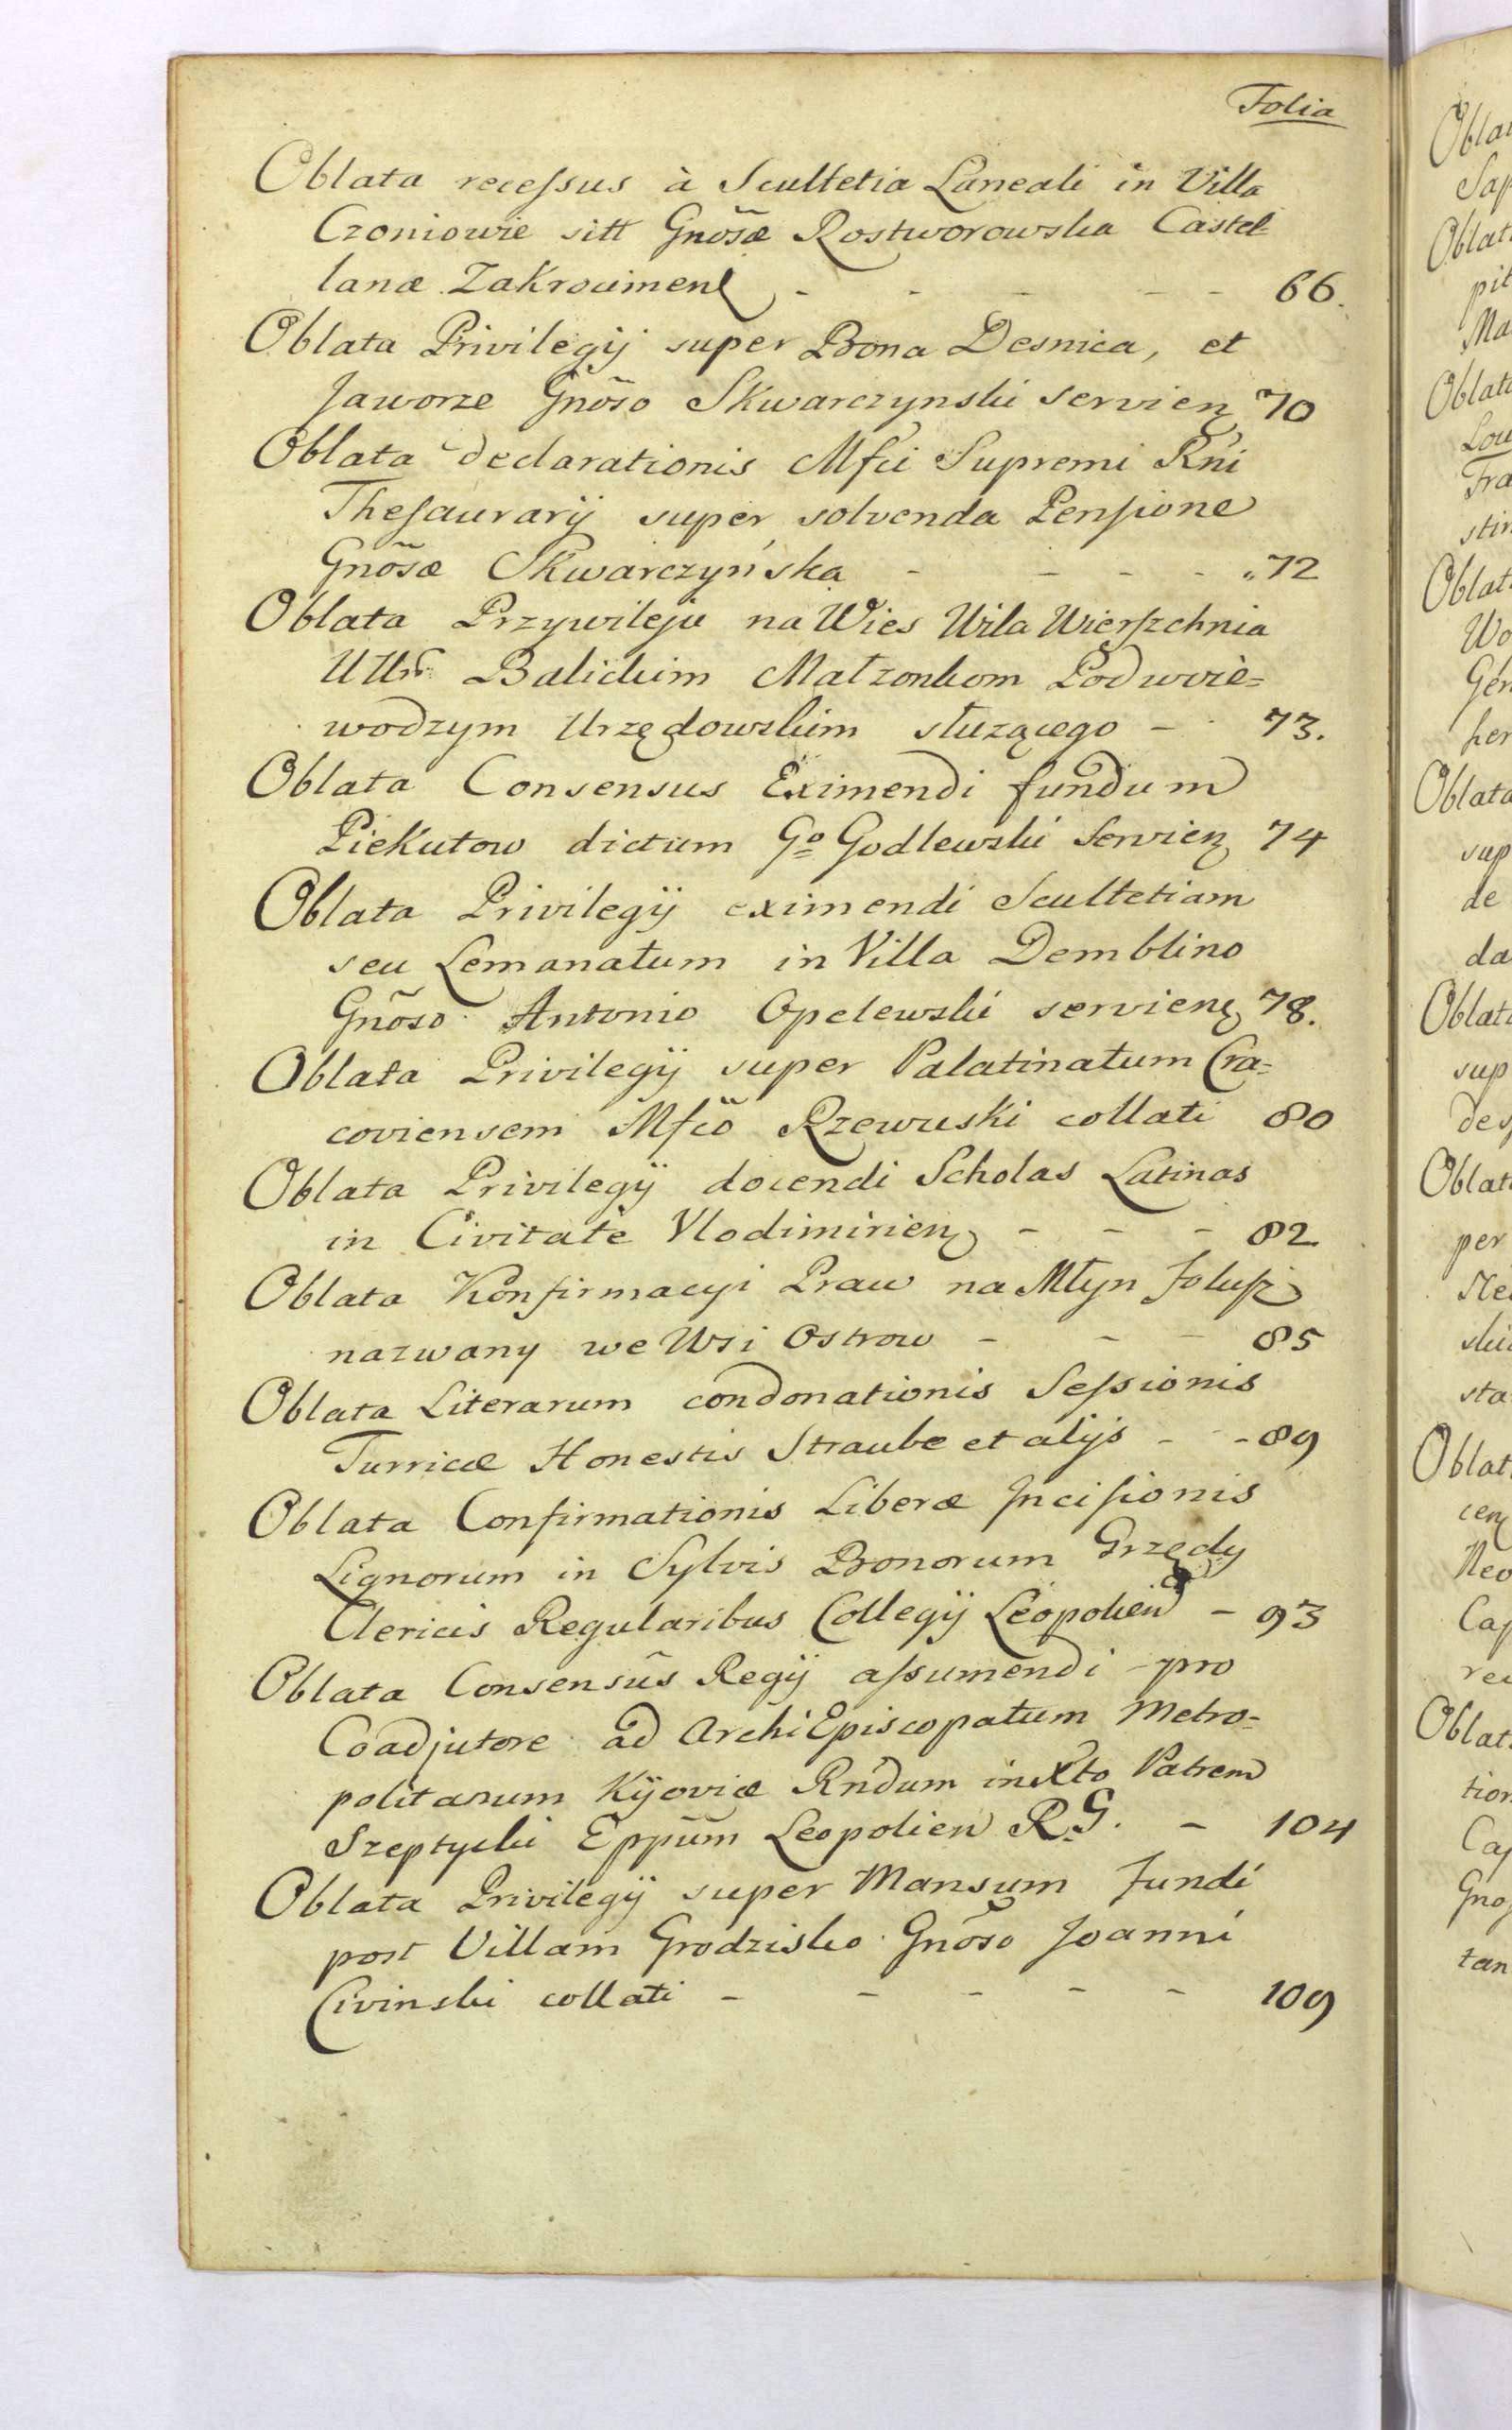 Folia
Oblata recessus à Scultetia Laneali in Villa
Czoniowie sitt Gnõsæ Rostworowska Castel=
lanæ Zakrocimens - - - - - 66.
Oblata Privilegij super Bona Desnica, et
Jaworze Gnõso Skwarczynski servien 70
Oblata declarationis Mfci Supremi Rni
Thesaurarij super solvenda Pensione
Gnõsæ Skwarczyńska - - - - 72
Oblata Przywileju na Wies Wila Wierszchnia
Balickim Małzonkom Podwoie=
wodzym Urzędowskim słuzącego - 73.
Oblata Consensus Eximendi fundum
Piekutow dictum Go Godlewski Servien 74
Oblata Privilegij eximendi Scultetiam
seu Lemanatum in Villa Demblino
Gnõso Antonio Opelewski servien 78.
Oblata Privilegij super Palatinatum Cra=
coviensem Mfcõ Rzewuski collati 80
Oblata Privilegij docendi Scholas Latinas
in Civitate Vlodimirien - - - 82
Oblata Konfirmacyi Praw na Młyn Folusz
nazwany we Wsi Ostrow - - - 85
Oblata Literarum condonationis Sessionis
Turricæ Honestis Straube et alijs - - 89
Oblata Confirmationis Liberæ Incisionis
Lignorum in Sylvis Bonorum Grzędy
Clericis Regularibus Collegij Leopolien - 93
Oblata Consensûs Regij assumendi pro
Coadjutore ad ArchiEpiscopatum Metro=
politanum Kijoviæ Rndum in Xto Patrem
Szeptycki Eppũm Leopolien R.G. - 104
Oblata Privilegij super Mansum Fundi
post Villam Grodzisko Gnõso Joanni
Civinski collati - - - - - 109